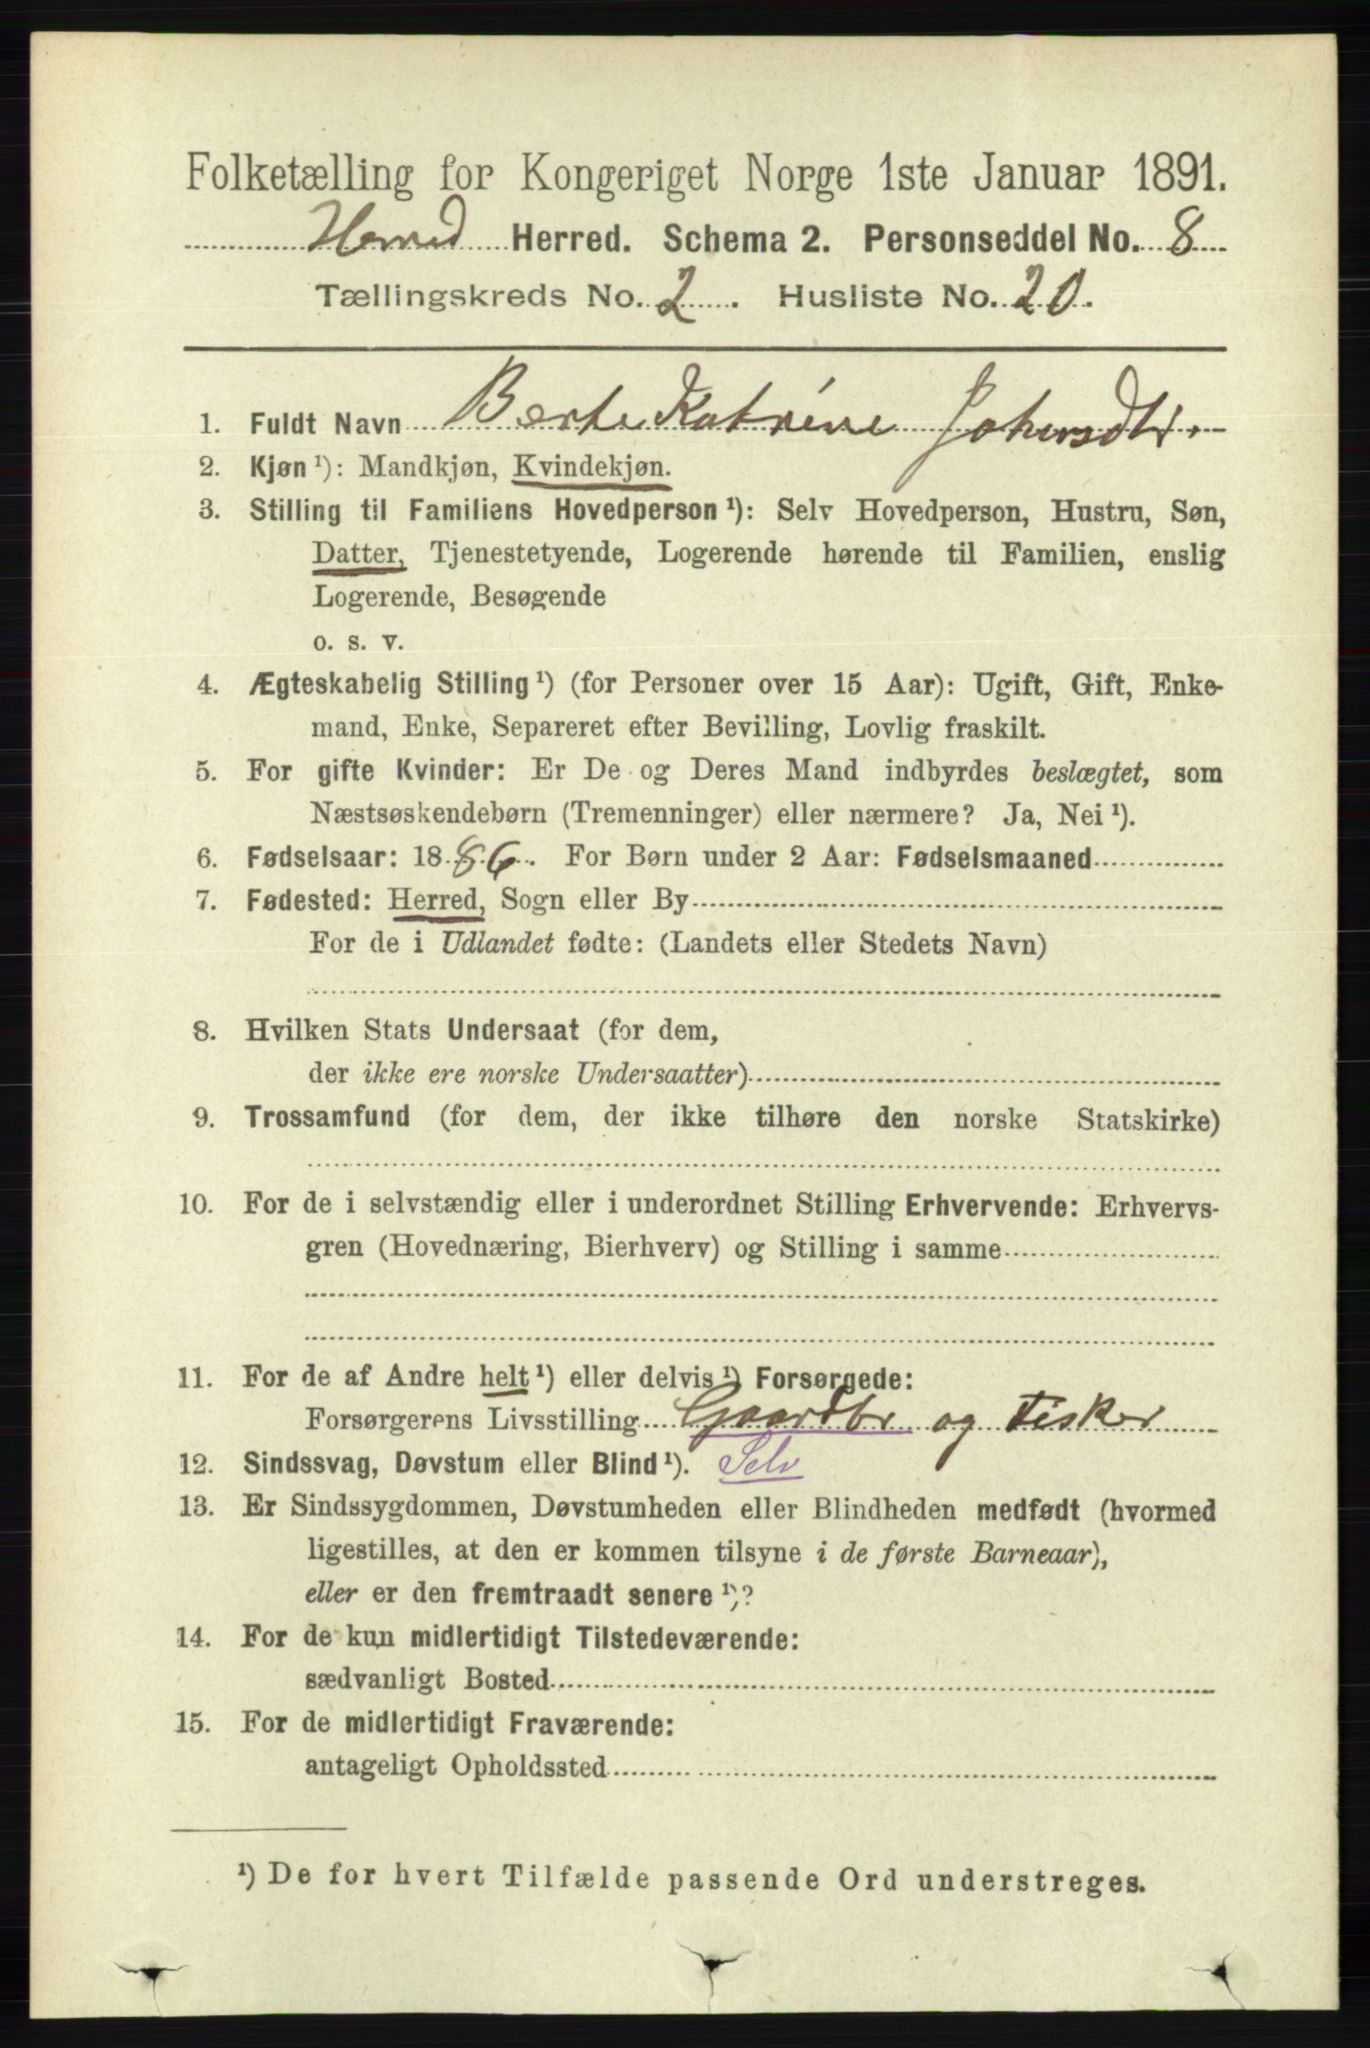 Folketælling for Kongeriget Norge 1ste Januar 1891.
Herred Herred. Schema 2. Personseddel No. 8
Tællingskreds No. 2. Husliste No. 20.
1. Fuldt Navn Berte Katrine
2. Kjøn ¹): Mandkjøn, Kvindekjøn.
3. Stilling til Familiens Hovedperson ¹): Selv Hovedperson, Hustru, Søn,
Datter, Tjenestetyende, Logerende hørende til Familien, enslig
Logerende, Besøgende
o. s. v.
4. Ægteskabelig Stilling ¹) (for Personer over 15 Aar): Ugift, Gift, Enke-
mand, Enke, Separeret efter Bevilling, Lovlig fraskilt.
5. For gifte Kvinder: Er De og Deres Mand indbyrdes beslægtet, som
Næstsøskendebørn (Tremenninger) eller nærmere? Ja, Nei ¹).
6. Fødselsaar: 1886. For Børn under 2 Aar: Fødselsmaaned
7. Fødested: Herred, Sogn eller By
For de i Udlandet fødte: (Landets eller Stedets Navn)
8. Hvilken Stats Undersaat (for dem,
der ikke ere norske Undersaatter)
9. Trossamfund (for dem, der ikke tilhøre den norske Statskirke)
10. For de i selvstændig eller i underordnet Stilling Erhvervende: Erhvervs-
gren (Hovednæring, Bierhverv) og Stilling i samme
11. For de af Andre helt ¹) eller delvis ¹) Forsørgede:
Forsørgerens Livsstilling Gaardbr og Fisker
12. Sindssvag, Døvstum eller Blind ¹). Selv
13. Er Sindssygdommen, Døvstumheden eller Blindheden medfødt (hvormed
ligestilles, at den er kommen tilsyne i de første Barneaar),
eller er den fremtraadt senere ¹)?
14. For de kun midlertidigt Tilstedeværende:
sædvanligt Bosted
15. For de midlertidigt Fraværende:
antageligt Opholdssted
¹) De for hvert Tilfælde passende Ord understreges.